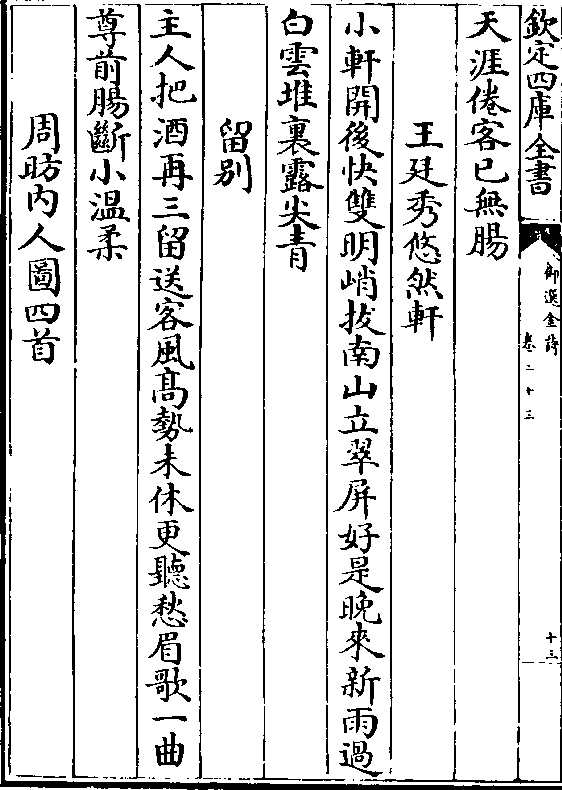 欽定四庫全書
御選金詩
卷二十三
十三
天涯倦客已無腸
王廷秀悠然軒
小軒開後快雙明峭拔南山立翠屏好是晚來新雨過
白雲堆裏露尖青
留别
主人把酒再三留送客風髙勢未休更聽愁眉歌一曲
尊前腸斷小温柔
周昉内人圖四首